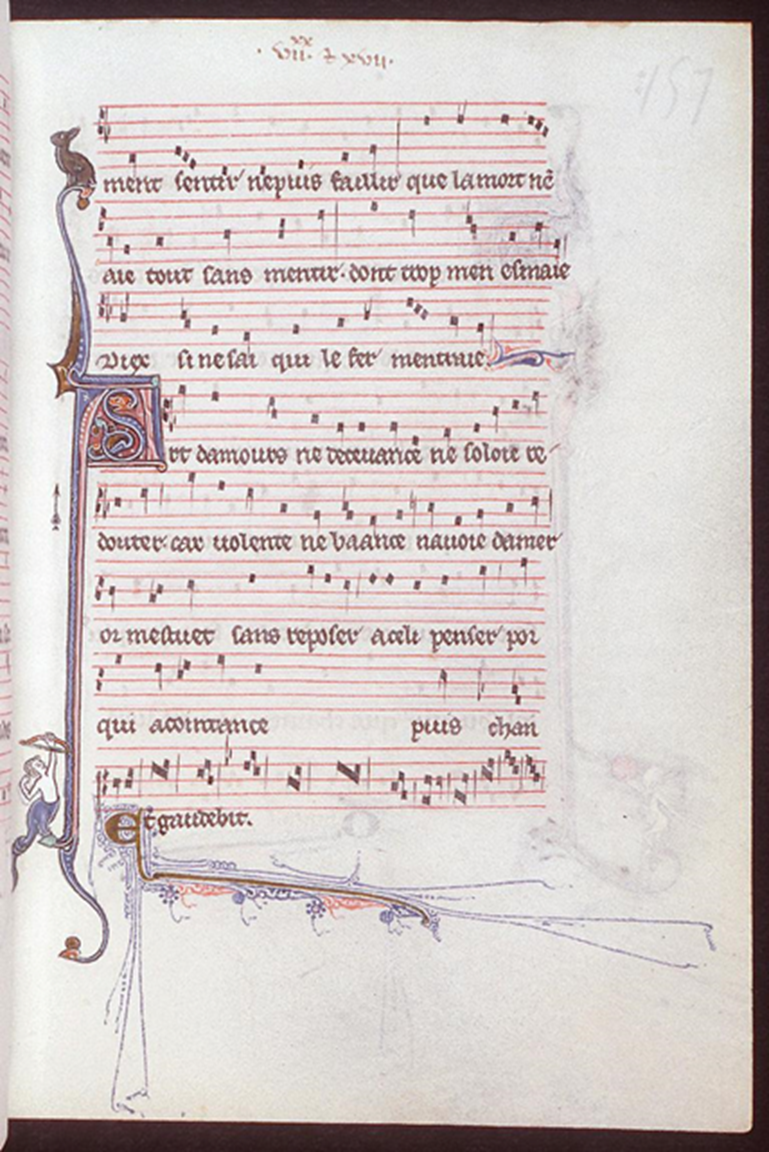 .vii.xx z xvii.
157
ment sentir nepuis faillir que lamort nē
aie tout sans mentir. dont trop men esmaie
Diex si ne sai qui le fer mentraie
SDrt damours ne decevance ne soloie re
douter. car volente ne baance navoie damer
or mestuet sans reposer a celi penser por
qui acointance puis chan
Et gaudebit.